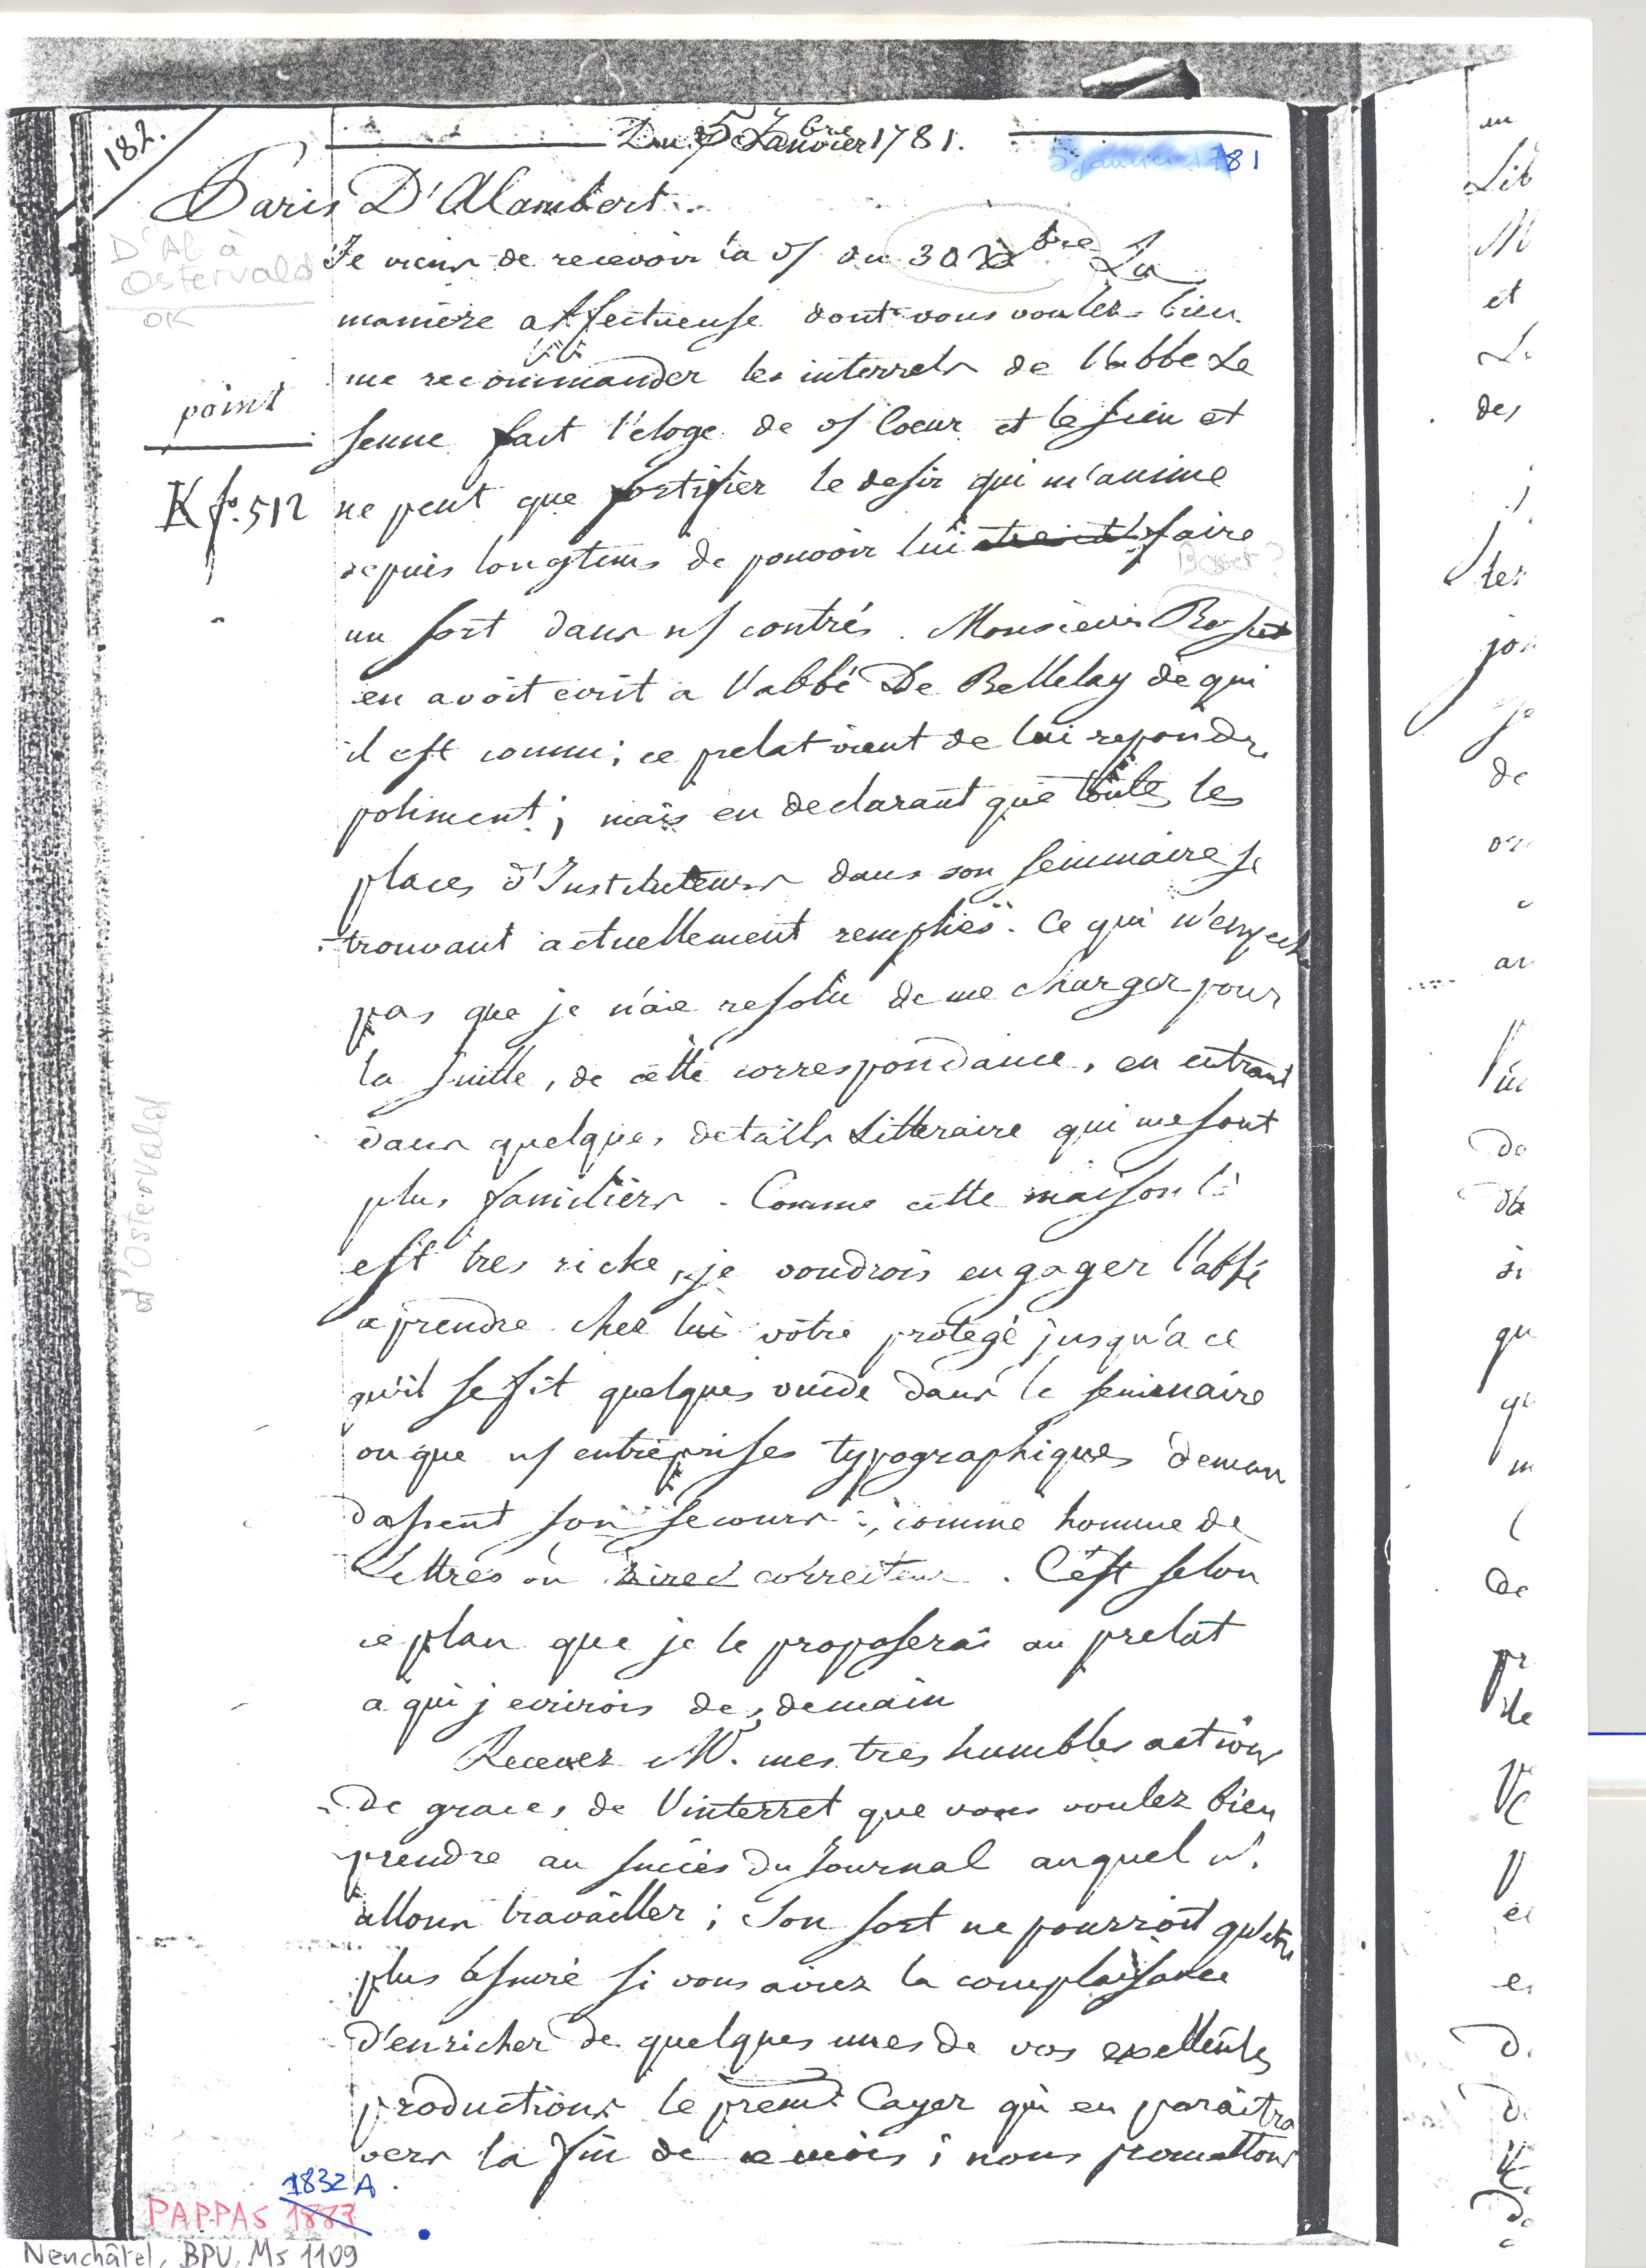 182.
Du 5 Janvier 1781.
5 janvier 1781
Paris D'Alambert.
D'Al à
Ostervald
OK
Je viens de recevoir la v/ du 30 Xbre La
maniere affectueuse dont vous voulez bien
me recommander les interrets de l'abbe Le
point
senne fait l'éloge de v/ Coeur et le sien et
K f°. 512
ne peut que fortifier le desir qui m'anime
depuis longtems de pouvoir lui faire
un sort dans n/ contrés. Monsieur Bosset
en avoit ecrit a l'abbé De Bellelay de qui
il est connu; ce prelat vient de lui repondre
poliment; mais en declarant que toutes les
places d'Instituteurs dans son seminaire se
trouvant actuellement remplies. Ce qui n'empeche
pas que je n'aie resolu de me charger pour
la suitte, de cette correspondance, en entrant
dans quelques details Litteraire qui me sont
plus familiers. Comme cette maison là
d'Ostervald
est tres riche, je voudrois engager l'abbé
a prendre chez lui votre protegé jusqu'a ce
qu'il se fit quelques vuide dans le seminaire
ou que n/ entreprises typographiques deman
dassent son secours, comme homme de
Lettres ou correcteur. C'est selon
ce plan que je le proposerai au prelat
a qui j ecrirois des demain
Recevez M. mes tres humbles actions
de graces de l'interret que vous voulez bien
prendre au succès du Journal auquel n/.
allons travailler; son sort ne pourroit qu'etre
plus assuré si vous aviez la complaisance
d'enricher de quelques unes de vos exellentes
productions le premr. Cayer qui en paraitra
vers la fin de ce mois; nous promettons
1832 A
PAPPAS 1883
Neuchâtel, BPU, Ms 1109